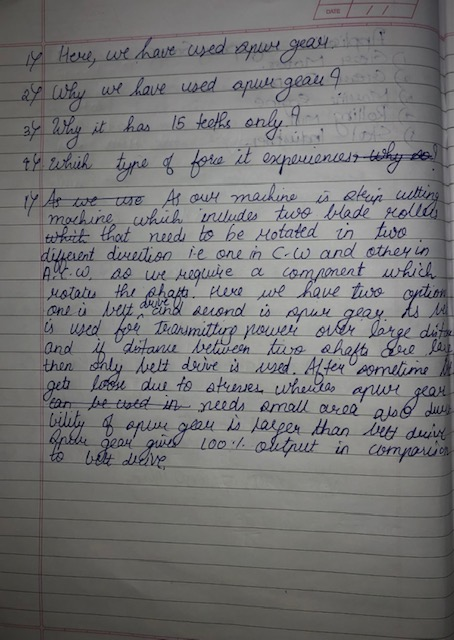 DATE
1) Here, we have used spur gear
2) Why we have used spur gear?
3) Why it has 15 teeths only?
4) Which type of force it experiences? Why so?
1) As we use As our machine is strip cutting
machine which includes two blade rollers
which that needs to be rotated in two
different direction i.e one in C.W and other in
A.C.W. so we require a component which
rotates the shafts. Here we have two option
one is belt drive and second is spur gear. As
is used for transmitting power over large
and if distance between two shafts are
then only belt drive is used. After sometime
gets loose due to stresses whereas spur gear
can be used in needs small area also
bility of spur gear is larger than belt drive
spur gear gives 100% output in comparison
to belt drive.